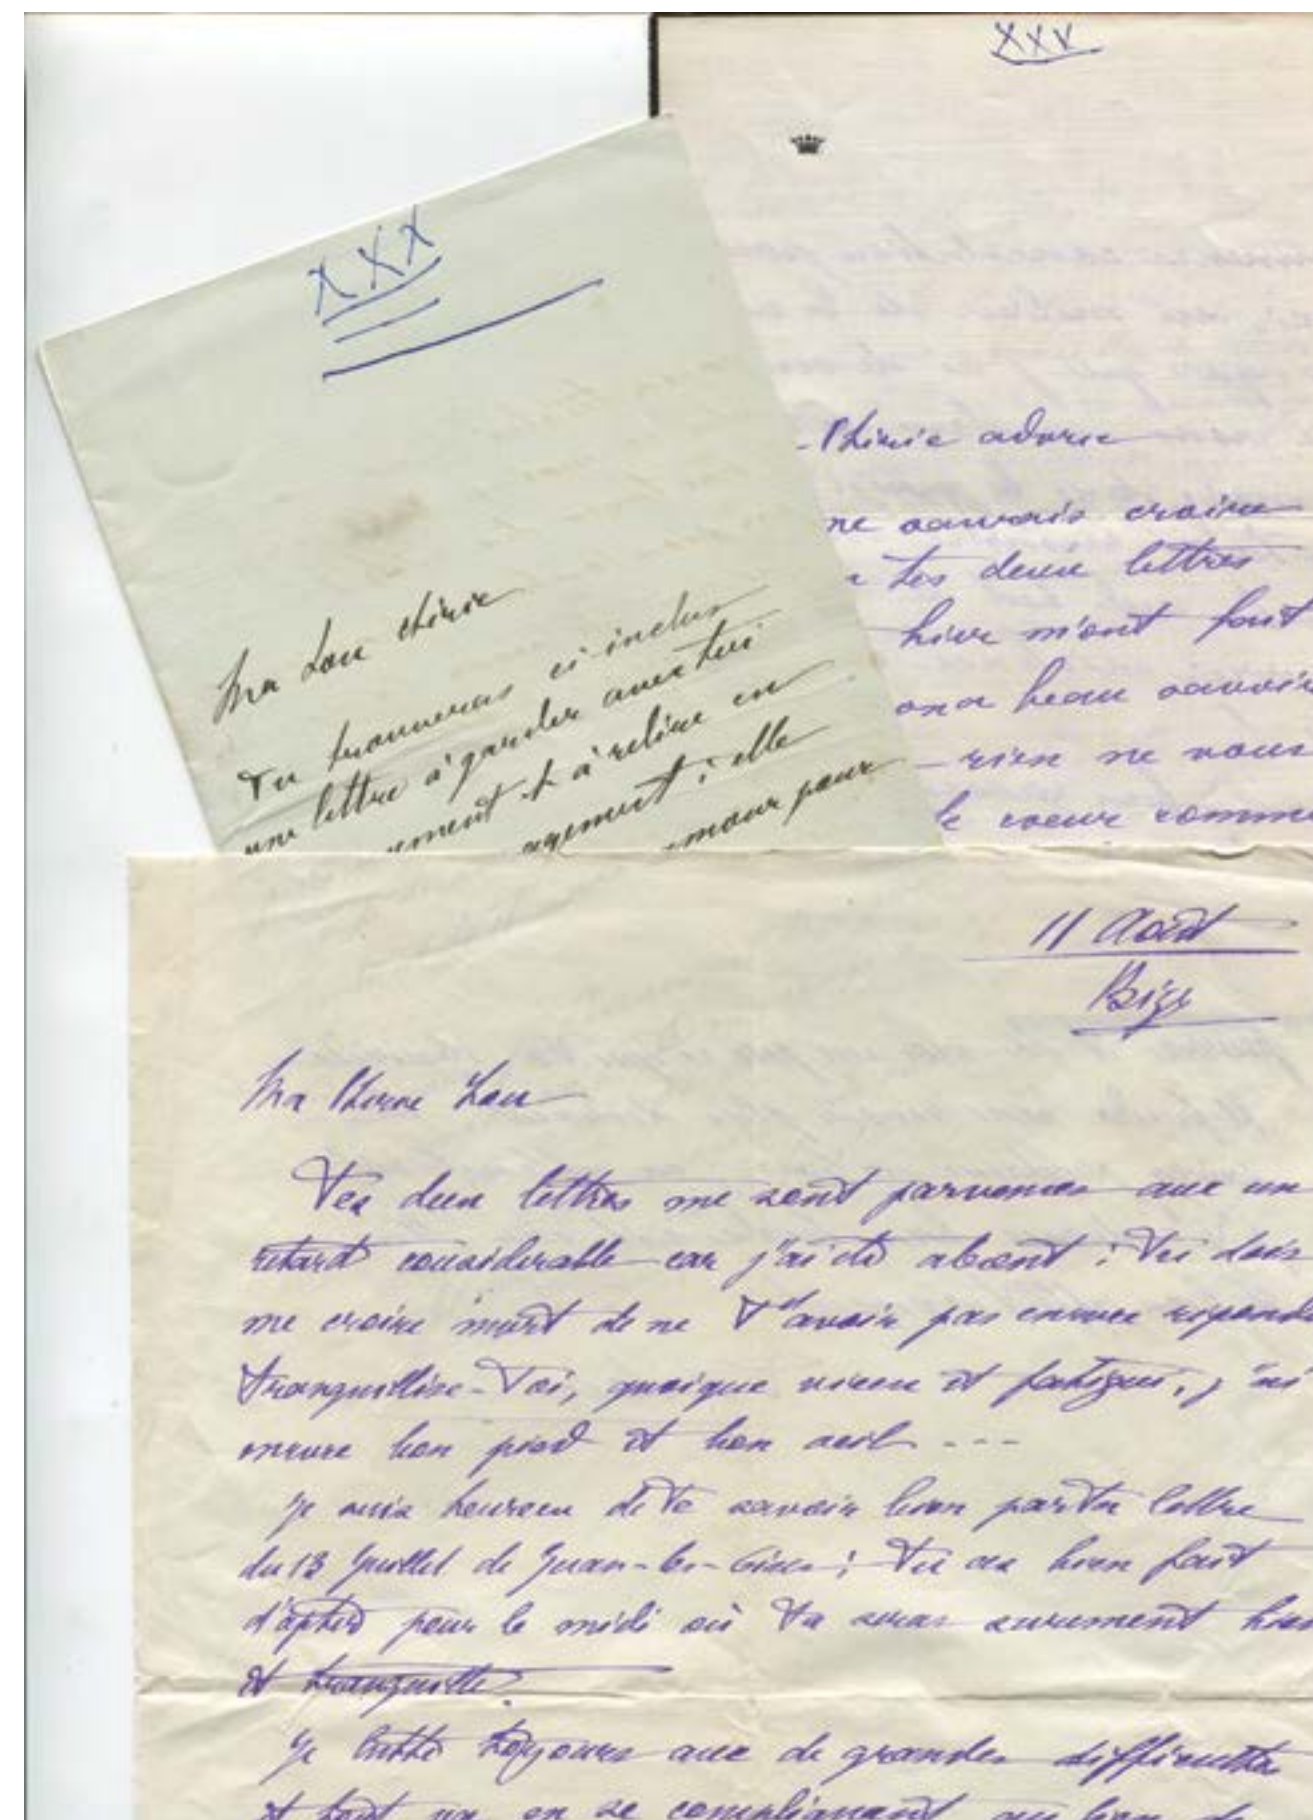 XXX
Ma Lou chérie
Tu trouveras ci-inclus
une lettre à garder avec toi
à relire en
elle
amour pour
XXV
Chérie adorée
ne saurais croire
tes deux lettres
hier m'ont fait
on a beau savoir
rien ne vous
le coeur comme
11 Août
Bize
Ma Chère Lou
Tes deux lettres me sont parvenues avec un
retard considérable car j'ai été absent ; Tu dois
me croire mort de ne t'avoir pas encore répondu
tranquillise-Toi, quoique vieux et fatigué, j'ai
encore bon pied et bon oeil ---
Je suis heureux de te savoir bien par ta lettre
du 13 Juillet de Juan-les-Pins ; Tu as bien fait
d'opter pour le midi où Tu seras surement bien
et tranquille.
Je lutte toujours avec de grandes difficultés
et tout va en se compliquant